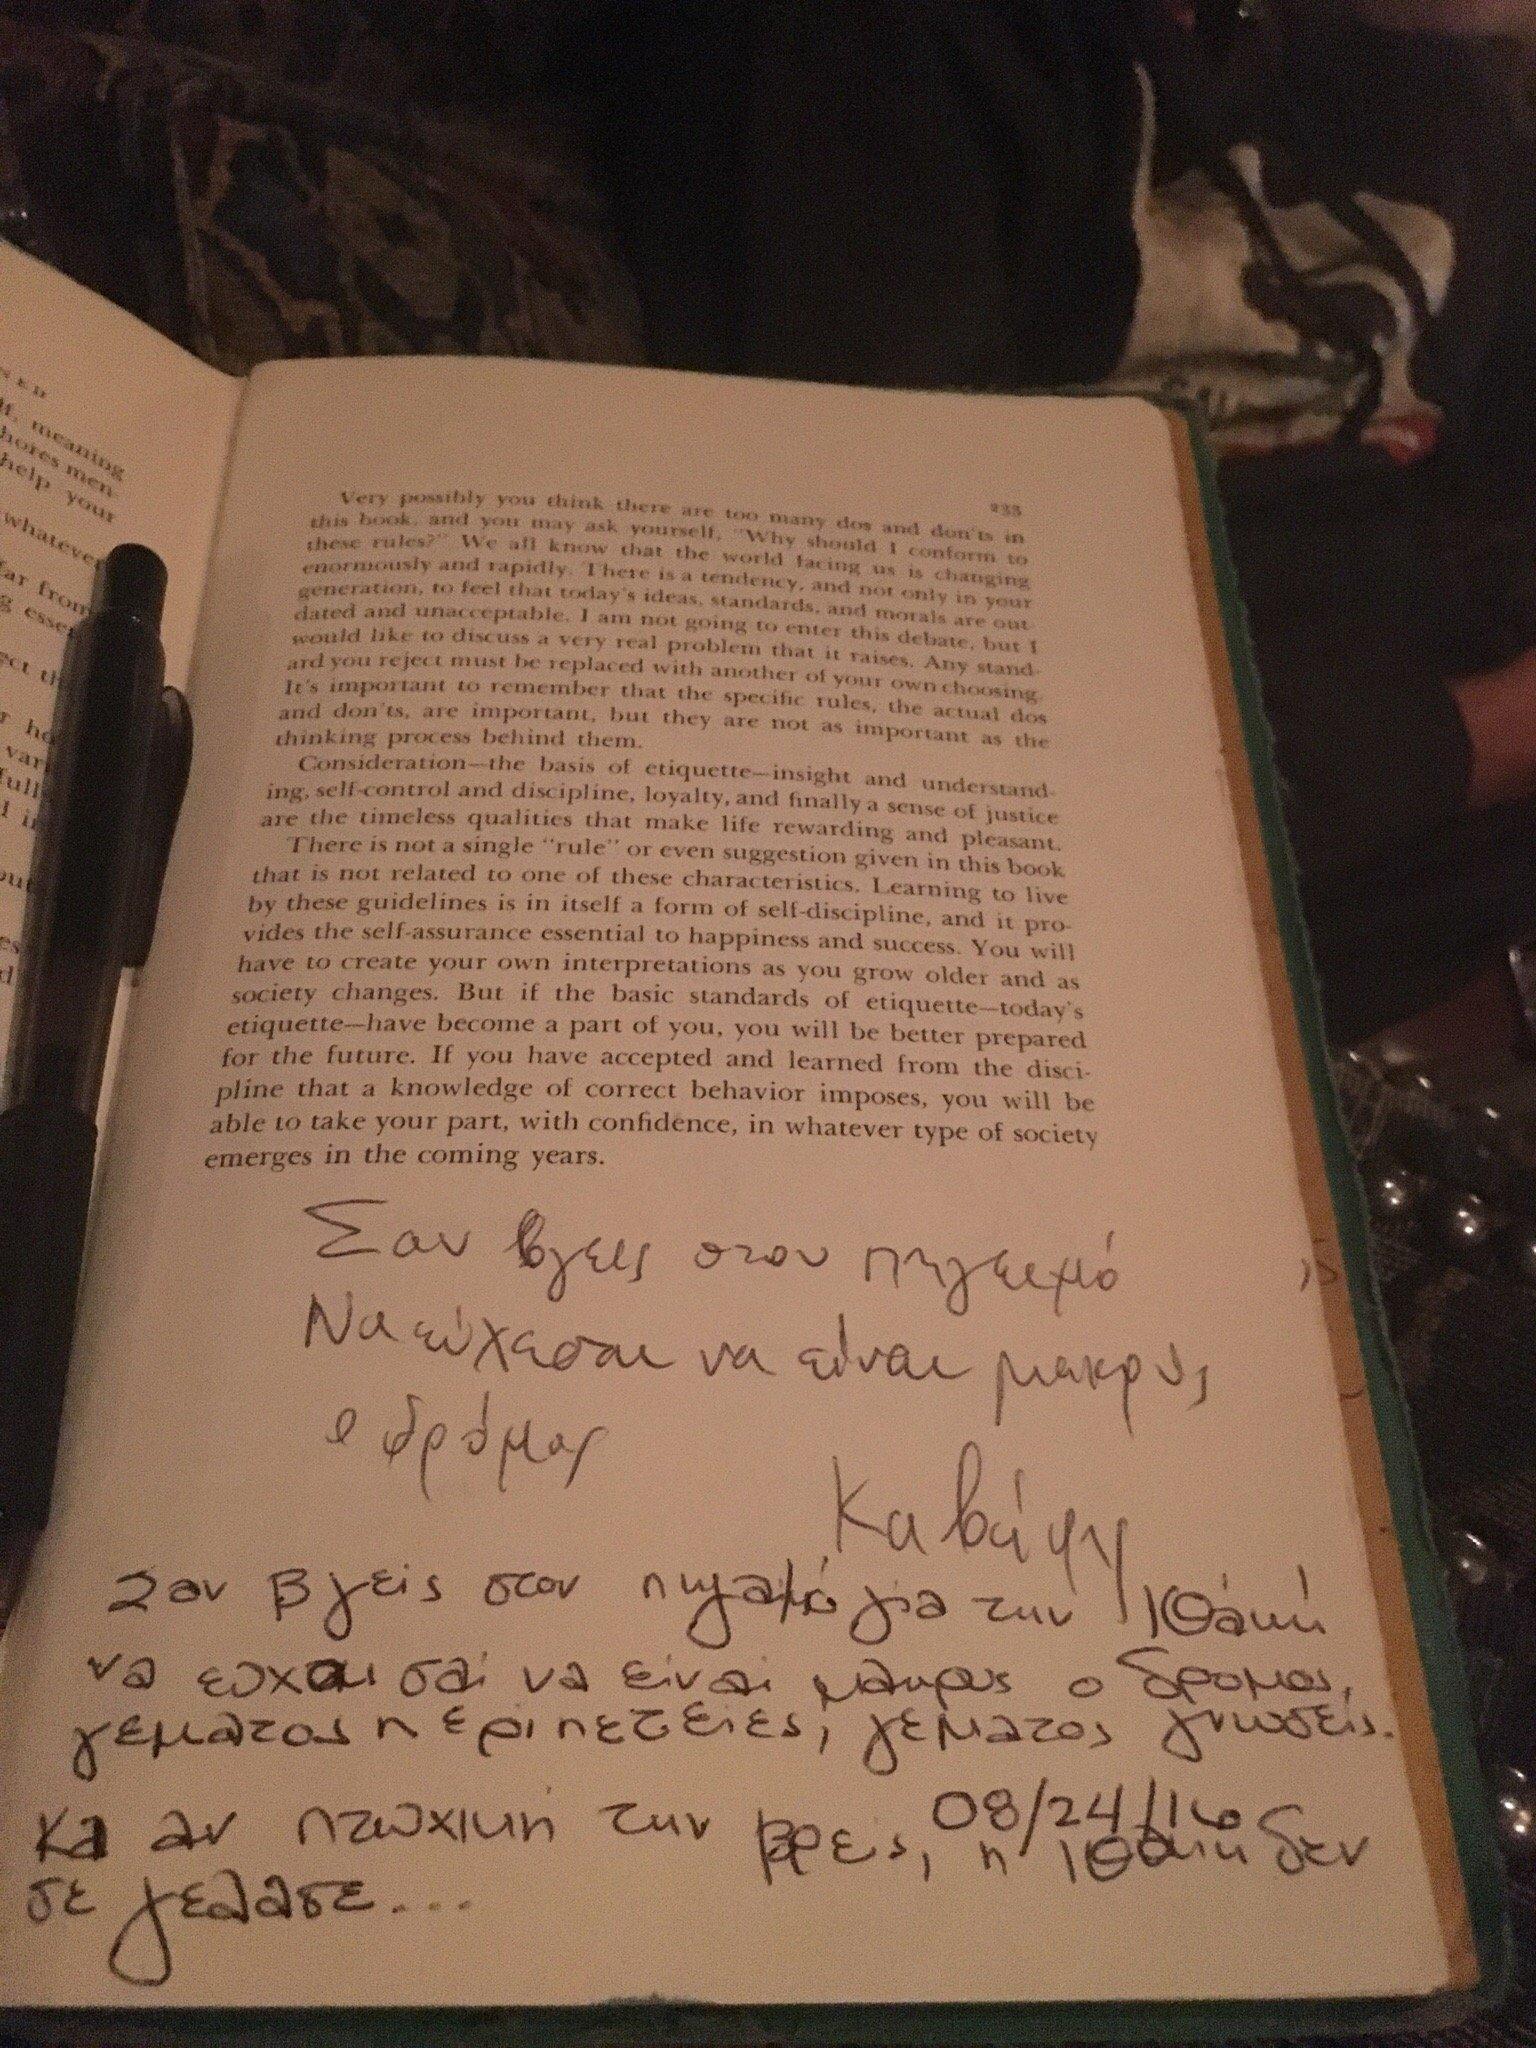 NED
lf, meaning
hores men-
help your
whatever
far from
g esse
ect th
r ho
var
full
l i
out
es
d
233
Very possibly you think there are too many dos and don'ts in
this book, and you may ask yourself, "Why should I conform to
these rules?" We all know that the world facing us is changing
enormously and rapidly. There is a tendency, and not only in your
generation, to feel that today's ideas, standards, and morals are out-
dated and unacceptable. I am not going to enter this debate, but I
would like to discuss a very real problem that it raises. Any stand-
ard you reject must be replaced with another of your own choosing.
It's important to remember that the specific rules, the actual dos
and don'ts, are important, but they are not as important as the
thinking process behind them.
Consideration—the basis of etiquette—insight and understand-
ing, self-control and discipline, loyalty, and finally a sense of justice
are the timeless qualities that make life rewarding and pleasant.
There is not a single "rule" or even suggestion given in this book
that is not related to one of these characteristics. Learning to live
by these guidelines is in itself a form of self-discipline, and it pro-
vides the self-assurance essential to happiness and success. You will
have to create your own interpretations as you grow older and as
society changes. But if the basic standards of etiquette—today's
etiquette—have become a part of you, you will be better prepared
for the future. If you have accepted and learned from the disci-
pline that a knowledge of correct behavior imposes, you will be
able to take your part, with confidence, in whatever type of society
emerges in the coming years.
Σαν βγεις στον πηγειμό
Να εύχεσαι να είναι μακρύς
ο δρόμος
Καβάφη
Σαν βγεις στον πηγαιμό για την Ιθάκη
να ευχαι σαι να είναι μακρυς ο δρομος,
γεματος περιπετειες, γεματος γνωσεις.
08/24/16
Κα αν πτωχικη την βρεις, η Ιθακη δεν
σε γελασε...